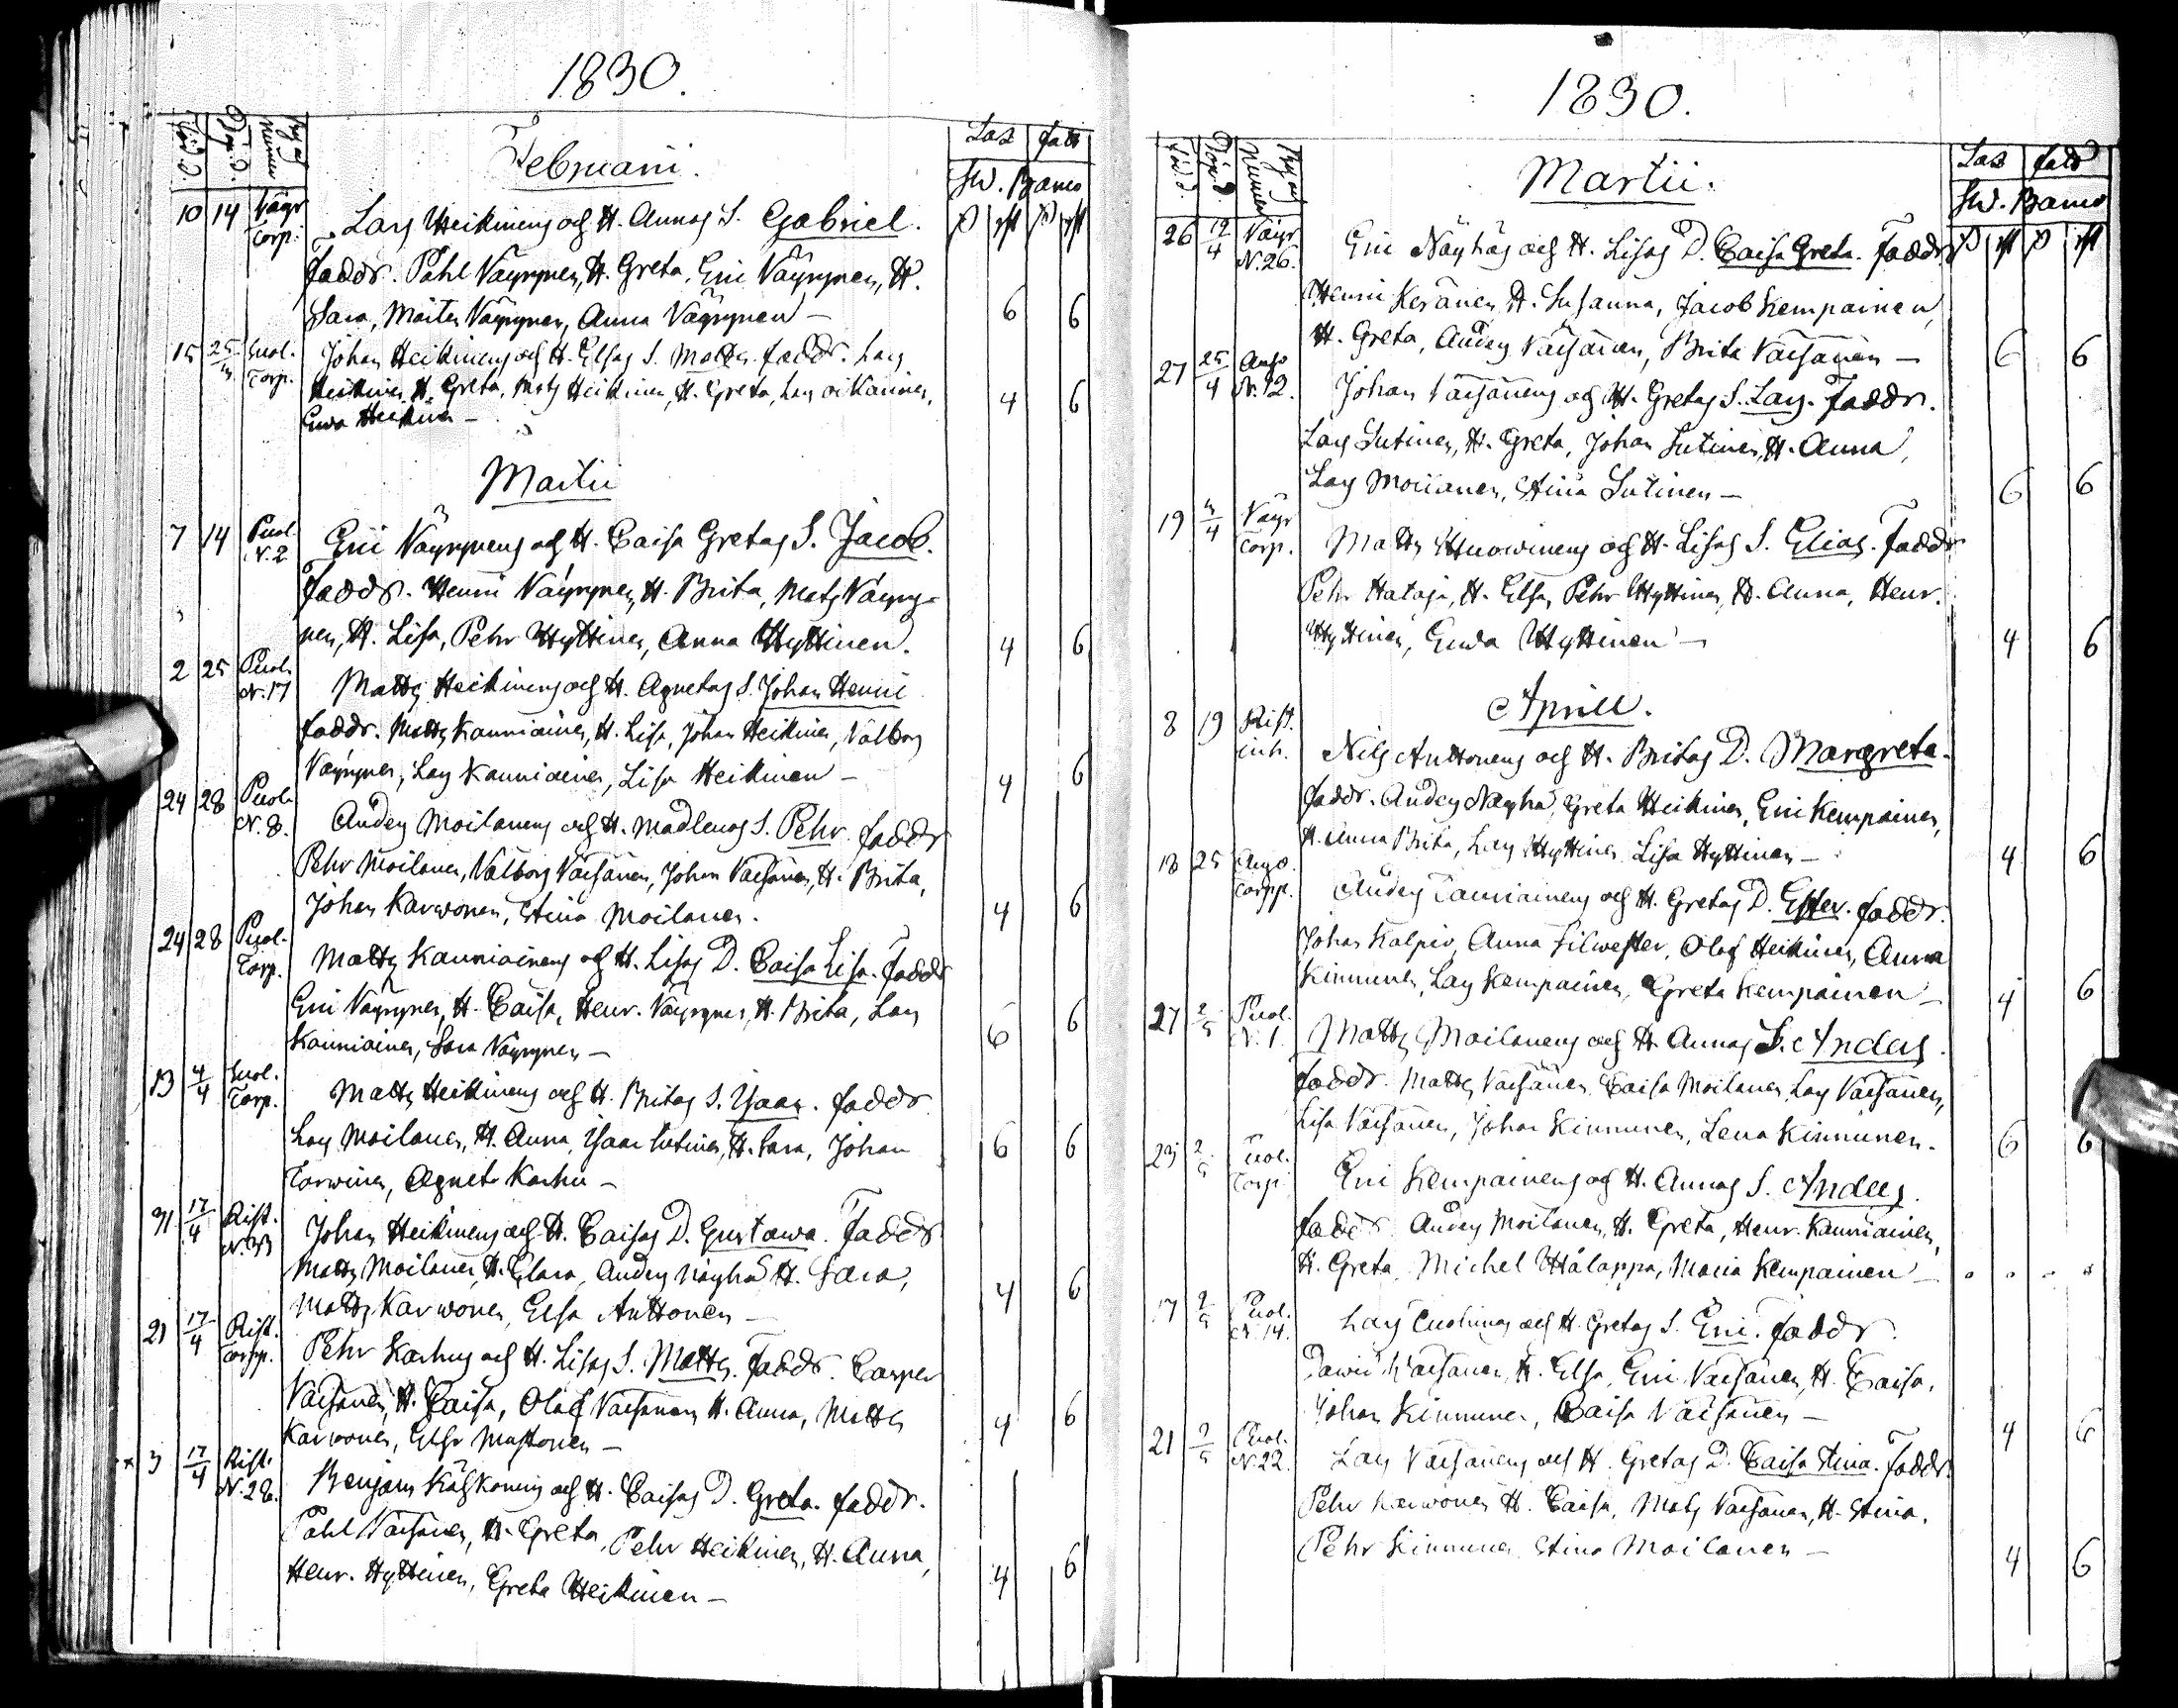 1830.
Född. Döp. d. By och Numer
Februarii.
Las fadd
Sw. Banco
10 14 Väyr Torp. Lars Heikinens och H. Annas S. Gabriel.
Faddr. Påhl Väyrynen, H. Greta, Eric Väyrynen, H.
Sara, Mårten Väyrynen, Anna Väyrynen — 6 6
15 25 Suol. Torp. Johan Heikinens och H. Elsas S. Matts. faddr. Lars
Heikinen H. Greta, Mats Heikinen, H. Greta, Lars Oikarinen,
Ewa Heikinen — 4 6
Martii
7 14 Puol. N. 2 Eric Väyrynens och H. Caisa Gretas S. Jacob.
Faddr. Henric Väyrynen, H. Brita, Mats Väyry-
nen, H. Lisa, Pehr Hyttinen, Anna Hyttinen. 4 6
2 25 Puol. N. 17 Matts Heikinens och H. Agnetas S. Johan Henric
faddr. Matts Kanniainen, H. Lisa, Johan Heikinen, Valborg
Väyrynen, Lars Kanniainen, Lisa Heikinen — 4 6
24 28 Puol. N. 8. Anders Moilanens och H. Madlenas S. Pehr. faddr
Pehr Moilanen, Valborg Väisänen, Johan Väisänen, H. Brita,
Johan Karwonen, Stina Moilanen. 4 6
24 28 Puol. Torp. Matts Kanniainens och H. Lisas D. Caisa Lisa. Faddr
Eric Väyrynen, H. Caisa, Henr. Väyrynen, H. Brita, Lars
Kanniainen, Sara Väyrynen — 6 6
13 4/4 Suol. Torp. Matts Heikinens och H. Britas S. Isaac. faddr
Lars Moilanen, H. Anna, Isaac Sutinen, H. Sara, Johan
Torwinen, Agneta Karhu — 6 6
31 17/4 Rist. N. 33 Johan Heikinens och H. Caisas D. Gustawa. Faddr
Matts Moilanen, H. Clara, Anders Näyhä H. Sara,
Matts Karwonen, Elsa Anttonen — 4 6
21 17/4 Rist. Torpp. Pehr Karhus och H. Lisas S. Matts. Faddr. Casper
Väisänen, H. Caisa, Olof Väisänen, H. Anna, Matts
Karwonen, Elsa Mustonen — 4 6
× 3 17/4 Rist. N. 28. Benjam. Kähkönens och H. Caisas D. Greta. faddr.
Påhl Väisänen, H. Greta, Pehr Heikinen, H. Anna,
Henr. Hyttinen, Greta Heikinen — 4 6
1830.
Född. Döp. d. By och Numer
Martii.
Las fadd
Sw. Banco
26 12/4 Väyr N. 26. Eric Näyhäs och H. Lisas D. Caisa Greta. Faddr.
Henric Keränen, H. Susanna, Jacob Kempainen,
H. Greta, Anders Väisänen, Brita Väisänen — 6 6
27 25/4 N. 12. Johan Väisänens och H. Gretas S. Lars. Faddr.
Lars Sutinen, H. Greta, Johan Sutinen, H. Anna,
Lars Moilanen, Stina Sutinen — 6 6
19 4/4 Väyr Torp. Matts Huowinens och H. Lisas S. Elias. Faddr
Pehr Hataja, H. Elsa, Pehr Hyttinen, H. Anna, Henr.
Hyttinen, Ewa Hyttinen — 4 6
Aprill.
8 19 Rist. inh. Nils Anttonens och H. Britas D. Margreta.
faddr. Anders Näyhä, Greta Heikinen, Eric Kempainen,
H. Anna Brita, Lars Hyttinen Lisa Hyttinen — 4 6
18 25 Torpp. Anders Tauriainens och H. Gretas D. Ester. faddr.
Johan Kalpio, Anna Silwester, Olof Heikinen, Anna
Kinnunen, Lars Kempainen, Greta Kempainen — 4 6
27 2/5 Puol. N. 1. Matts Moilanens och H. Annas S. Anders.
Faddr. Matts Väisänen, Caisa Moilanen, Lars Väisänen,
Lisa Väisänen, Johan Kinnunen, Lena Kinnunen. 6 6
23 2/5 Puol. Torp Eric Kempainens och H. Annas S. Anders.
faddr. Anders Moilanen, H. Greta, Henr. Kanniainen,
H. Greta, Michel Hålappa, Maria Kempainen — " " " "
17 2/5 Puol. N. 14. Lars och H. Gretas S. Eric. faddr.
Dawid Väisänen, H. Elsa, Eric Väisänen, H. Caisa,
Johan Kinnunen, Caisa Väisänen — 4 6
21 2/5 Puol. N. 22. Lars Väisänens och H. Gretas D. Caisa Stina. Faddr.
Pehr Karwonen H. Caisa, Mats Väisänen, H. Stina,
Pehr Kinnunen Stina Moilanen — 4 6